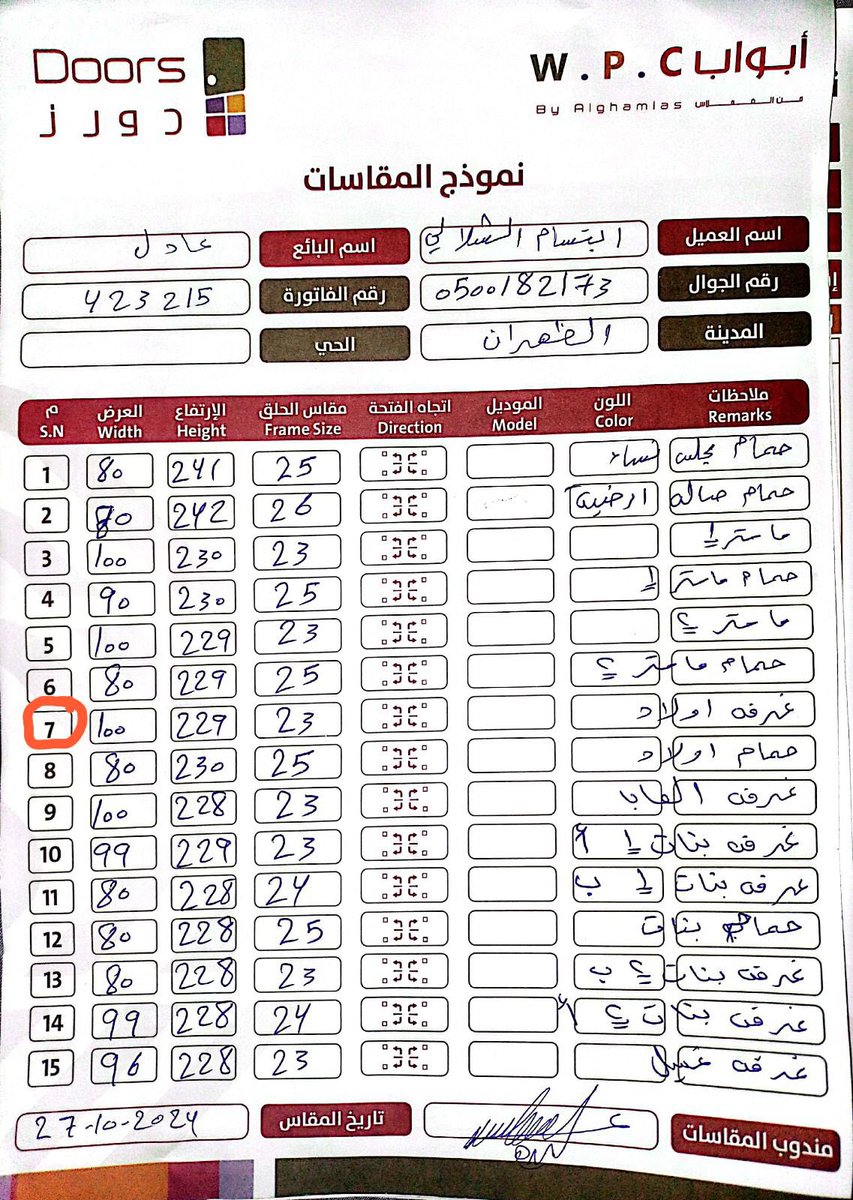 Doors
دورز
أبواب W.P.C
By Alghamlas من الغملاس
نموذج المقاسات
اسم العميل ابتسام الشلالي اسم البائع عادل
رقم الجوال 0500182173 رقم الفاتورة 423215
المدينة الظهران الحي
م العرض الإرتفاع مقاس الحلق اتجاه الفتحة الموديل اللون ملاحظات
S.N Width Height Frame Size Direction Model Color Remarks
1 80 241 25 حمام مجلس نساء
2 80 242 26 حمام صاله ارضيه
3 100 230 23 ماستر 1
4 90 230 25 حمام ماستر 1
5 100 229 23 ماستر 2
6 80 229 25 حمام ماستر 2
7 100 229 23 غرفه اولاد
8 80 230 25 حمام اولاد
9 100 228 23 غرفه
10 99 229 23 غرفه بنات 1 أ
11 80 228 24 غرفه بنات 1 ب
12 80 228 25 حمام بنات
13 80 228 23 غرفه بنات 2 ب
14 99 228 24 غرفه بنات 2 أ
15 96 228 23 غرفه غسيل
مندوب المقاسات تاريخ المقاس 27-10-2024